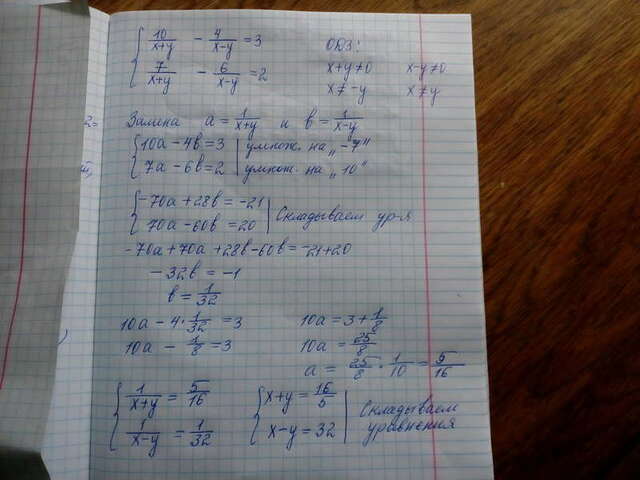 10/(x+y) - 4/(x-y) = 3 ОДЗ:
7/(x+y) - 6/(x-y) = 2 x+y≠0 x-y≠0
x≠-y x≠y
Замена a = 1/(x+y) и b = 1/(x-y)
10a - 4b = 3 | умнож. на „-7"
7a - 6b = 2 | умнож. на „10"
-70a + 28b = -21
70a - 60b = 20 | Складываем ур-я
-70a + 70a + 28b - 60b = -21 + 20
-32b = -1
b = 1/32
10a - 4·1/32 = 3 10a = 3 + 1/8
10a - 1/8 = 3 10a = 25/8
a = 25/8 · 1/10 = 5/16
1/(x+y) = 5/16 x+y = 16/5 | Складываем
1/(x-y) = 1/32 x-y = 32 | уравнения